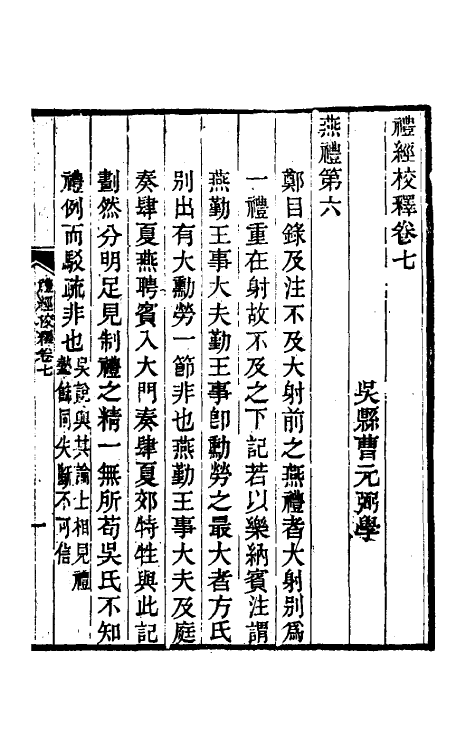 禮經校釋卷七
吳縣曹元弼學
燕禮第六
鄭目錄及注不及大射前之燕禮者大射別爲
一禮重在射故不及之下記若以樂納賓注謂
燕勤王事大夫勤王事卽勳勞之最大者方氏
別出有大勳勞一節非也燕勤王事大夫及庭
奏肆夏燕聘賓入大門奏肆夏郊特牲與此記
劃然分明足見制禮之精一無所苟吳氏不知
禮例而駁疏非也吳說與其論上相見禮
同失斷不可信
禮經校釋卷七
一